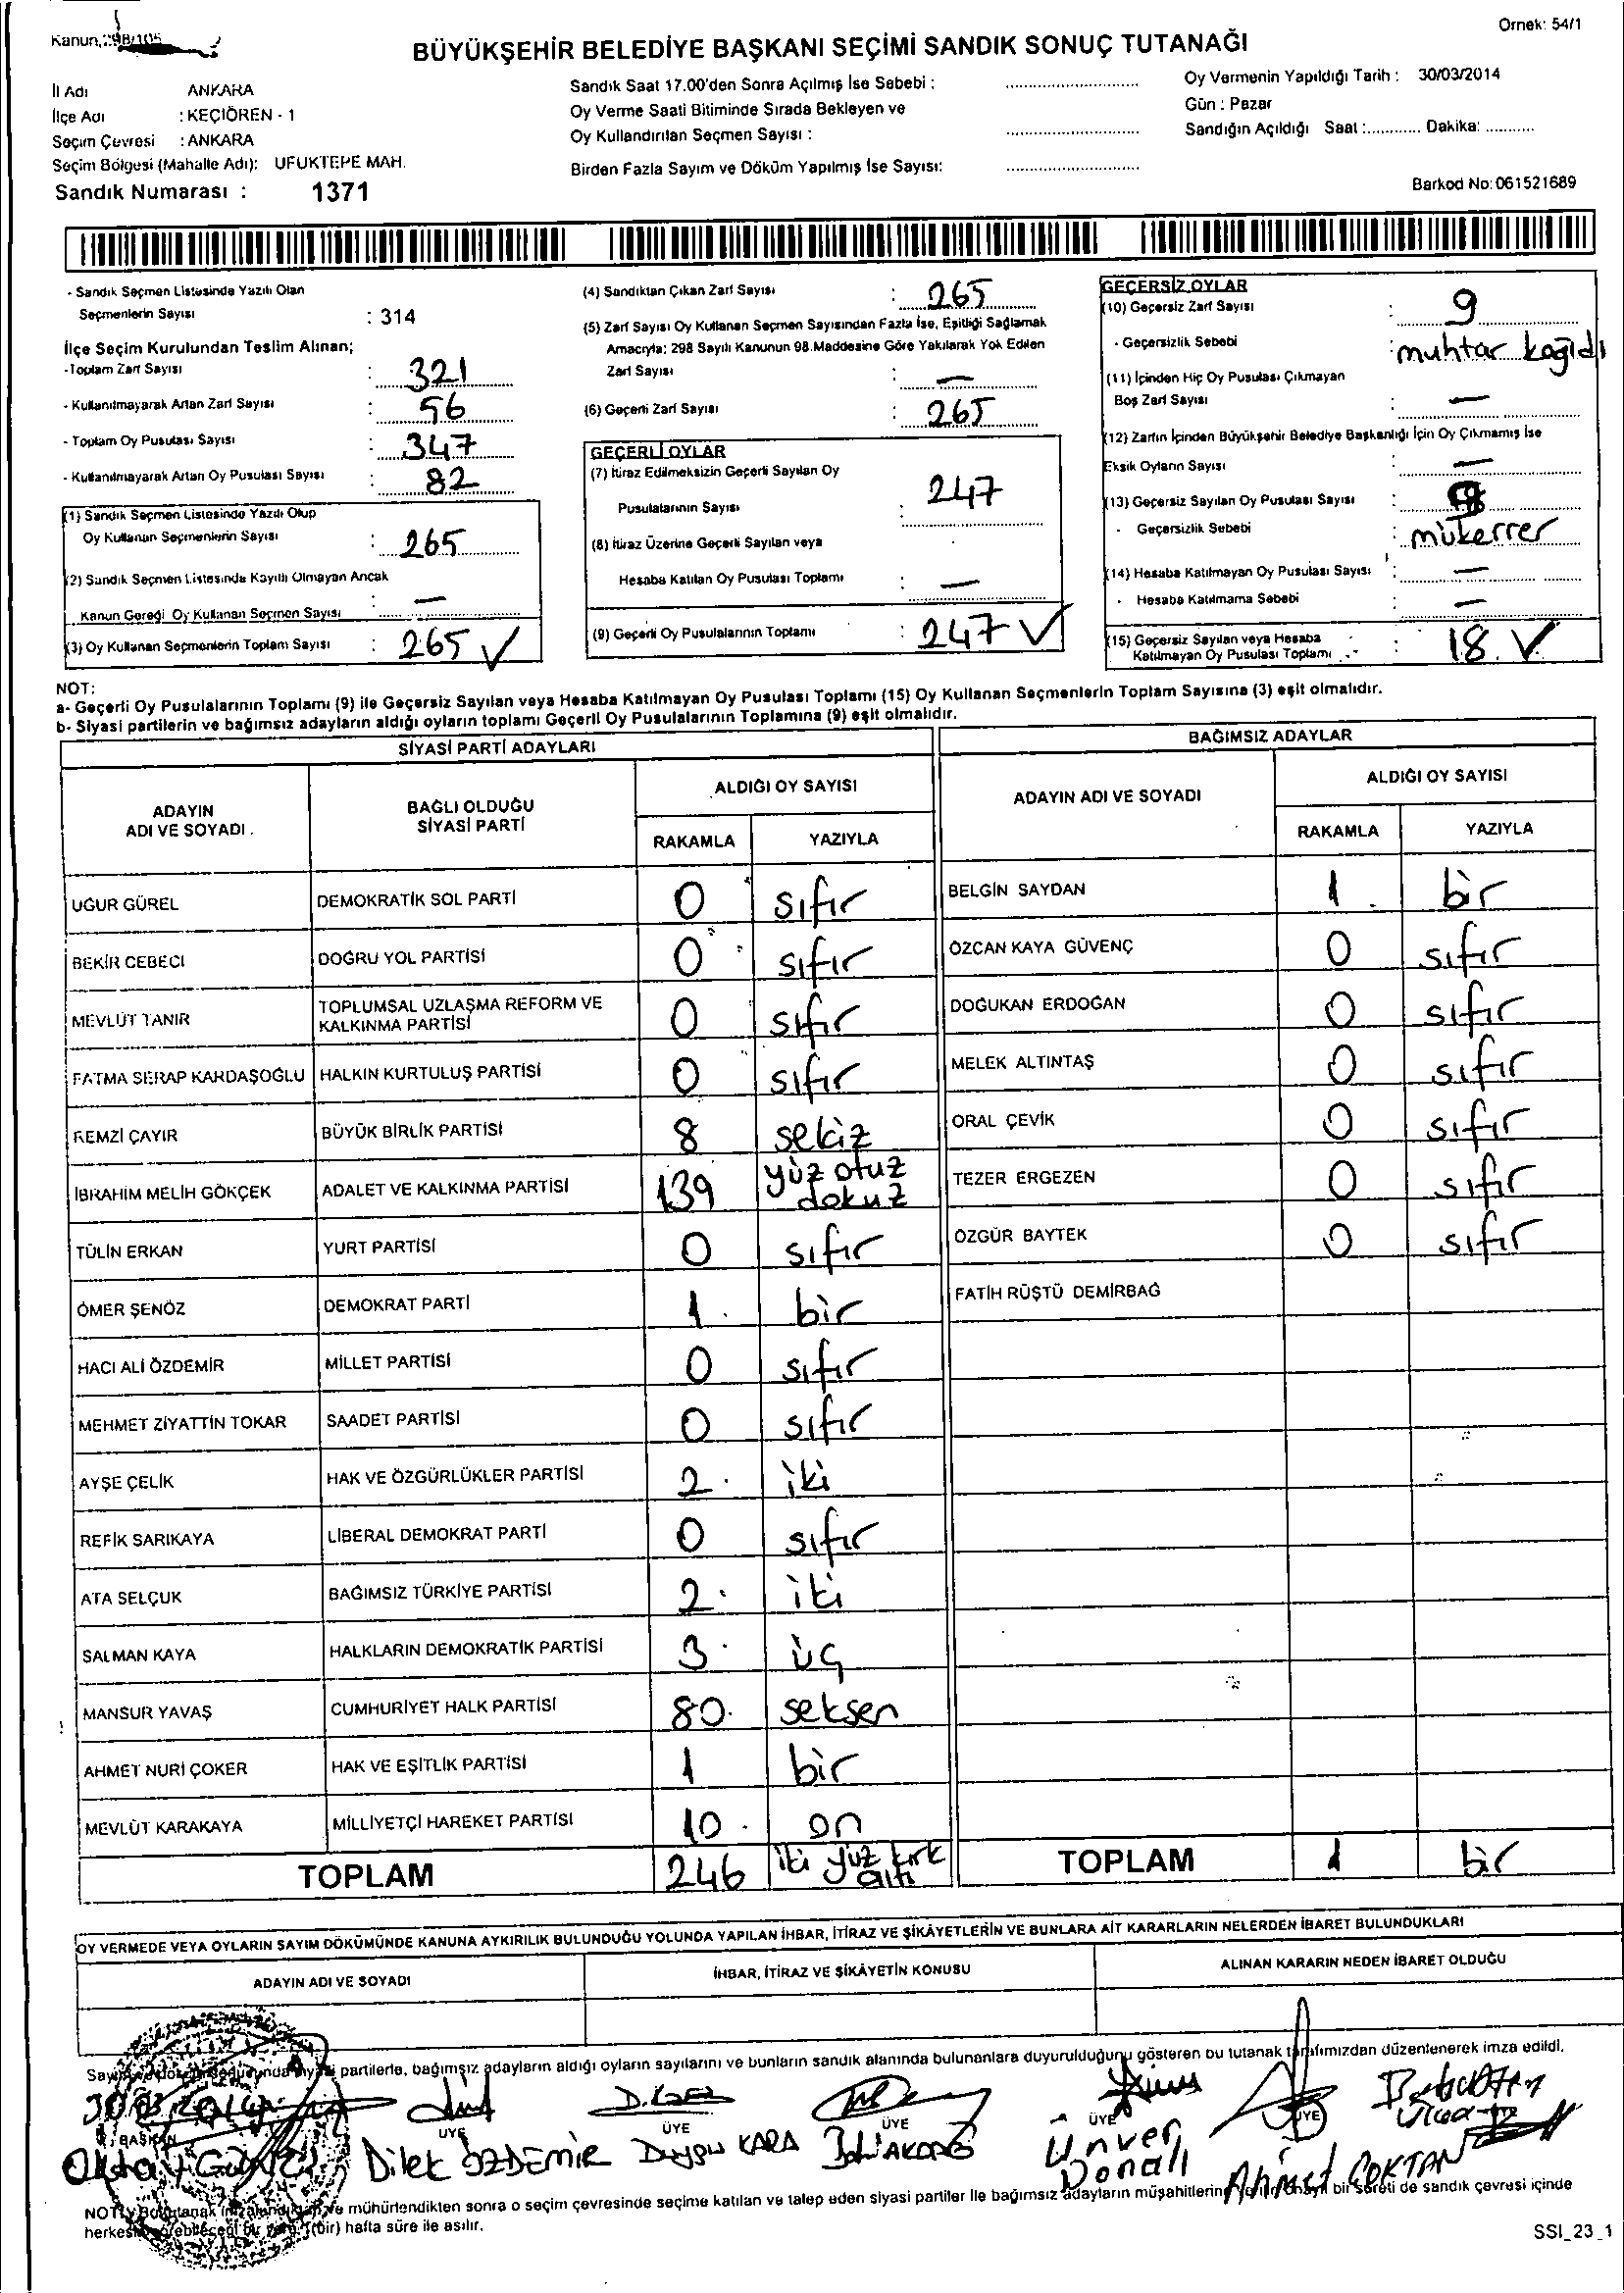 Kanun: 298/105
Örnek: 54/1
BÜYÜKŞEHİR BELEDİYE BAŞKANI SEÇİMİ SANDIK SONUÇ TUTANAĞI
İl Adı ANKARA
İlçe Adı : KEÇİÖREN - 1
Seçim Çevresi : ANKARA
Seçim Bölgesi (Mahalle Adı): UFUKTEPE MAH.
Sandık Numarası : 1371
Sandık Saat 17.00'den Sonra Açılmış İse Sebebi :
Oy Verme Saati Bitiminde Sırada Bekleyen ve
Oy Kullandırılan Seçmen Sayısı :
Birden Fazla Sayım ve Döküm Yapılmış İse Sayısı:
Oy Vermenin Yapıldığı Tarih : 30/03/2014
Gün : Pazar
Sandığın Açıldığı Saat :............ Dakika: ...........
Barkod No: 061521689
- Sandık Seçmen Listesinde Yazılı Olan
Seçmenlerin Sayısı : 314
İlçe Seçim Kurulundan Teslim Alınan;
-Toplam Zarf Sayısı : 321
- Kullanılmayarak Artan Zarf Sayısı : 56
- Toplam Oy Pusulası Sayısı : 347
- Kullanılmayarak Artan Oy Pusulası Sayısı : 82
(1) Sandık Seçmen Listesinde Yazılı Olup
Oy Kullanan Seçmenlerin Sayısı : 265
(2) Sandık Seçmen Listesinde Kayıtlı Olmayan Ancak
Kanun Gereği Oy Kullanan Seçmen Sayısı : —
(3) Oy Kullanan Seçmenlerin Toplam Sayısı : 265 ✓
(4) Sandıktan Çıkan Zarf Sayısı : 265
(5) Zarf Sayısı Oy Kullanan Seçmen Sayısından Fazla İse, Eşitliği Sağlamak
Amacıyla; 298 Sayılı Kanunun 98.Maddesine Göre Yakılarak Yok Edilen
Zarf Sayısı : —
(6) Geçerli Zarf Sayısı : 265
GEÇERLİ OYLAR
(7) İtiraz Edilmeksizin Geçerli Sayılan Oy
Pusulalarının Sayısı : 247
(8) İtiraz Üzerine Geçerli Sayılan veya
Hesaba Katılan Oy Pusulası Toplamı : —
(9) Geçerli Oy Pusulalarının Toplamı : 247 ✓
GEÇERSİZ OYLAR
(10) Geçersiz Zarf Sayısı : 9
- Geçersizlik Sebebi : muhtar kağıdı
(11) İçinden Hiç Oy Pusulası Çıkmayan
Boş Zarf Sayısı : —
(12) Zarfın İçinden Büyükşehir Belediye Başkanlığı İçin Oy Çıkmamış İse
Eksik Oyların Sayısı : —
(13) Geçersiz Sayılan Oy Pusulası Sayısı : 9
- Geçersizlik Sebebi : mükerrer
(14) Hesaba Katılmayan Oy Pusulası Sayısı : —
- Hesaba Katılmama Sebebi : —
(15) Geçersiz Sayılan veya Hesaba
Katılmayan Oy Pusulası Toplamı : 18 ✓
NOT:
a- Geçerli Oy Pusulalarının Toplamı (9) ile Geçersiz Sayılan veya Hesaba Katılmayan Oy Pusulası Toplamı (15) Oy Kullanan Seçmenlerin Toplam Sayısına (3) eşit olmalıdır.
b- Siyasi partilerin ve bağımsız adayların aldığı oyların toplamı Geçerli Oy Pusulalarının Toplamına (9) eşit olmalıdır.
SİYASİ PARTİ ADAYLARI
ADAYIN ADI VE SOYADI BAĞLI OLDUĞU SİYASİ PARTİ ALDIĞI OY SAYISI RAKAMLA YAZIYLA
UĞUR GÜREL DEMOKRATİK SOL PARTİ 0 sıfır
BEKİR CEBECİ DOĞRU YOL PARTİSİ 0 sıfır
MEVLÜT TANIR TOPLUMSAL UZLAŞMA REFORM VE KALKINMA PARTİSİ 0 sıfır
FATMA SERAP KARDAŞOĞLU HALKIN KURTULUŞ PARTİSİ 0 sıfır
REMZİ ÇAYIR BÜYÜK BİRLİK PARTİSİ 8 sekiz
İBRAHİM MELİH GÖKÇEK ADALET VE KALKINMA PARTİSİ 139 yüz otuz dokuz
TÜLİN ERKAN YURT PARTİSİ 0 sıfır
ÖMER ŞENÖZ DEMOKRAT PARTİ 1 bir
HACI ALİ ÖZDEMİR MİLLET PARTİSİ 0 sıfır
MEHMET ZİYATTİN TOKAR SAADET PARTİSİ 0 sıfır
AYŞE ÇELİK HAK VE ÖZGÜRLÜKLER PARTİSİ 2 iki
REFİK SARIKAYA LİBERAL DEMOKRAT PARTİ 0 sıfır
ATA SELÇUK BAĞIMSIZ TÜRKİYE PARTİSİ 2 iki
SALMAN KAYA HALKLARIN DEMOKRATİK PARTİSİ 3 üç
MANSUR YAVAŞ CUMHURİYET HALK PARTİSİ 80 seksen
AHMET NURİ ÇOKER HAK VE EŞİTLİK PARTİSİ 1 bir
MEVLÜT KARAKAYA MİLLİYETÇİ HAREKET PARTİSİ 10 on
TOPLAM 246 iki yüz kırk altı
BAĞIMSIZ ADAYLAR
ADAYIN ADI VE SOYADI ALDIĞI OY SAYISI RAKAMLA YAZIYLA
BELGİN SAYDAN 1 bir
ÖZCAN KAYA GÜVENÇ 0 sıfır
DOĞUKAN ERDOĞAN 0 sıfır
MELEK ALTINTAŞ 0 sıfır
ORAL ÇEVİK 0 sıfır
TEZER ERGEZEN 0 sıfır
ÖZGÜR BAYTEK 0 sıfır
FATİH RÜŞTÜ DEMİRBAĞ
TOPLAM 1 bir
OY VERMEDE VEYA OYLARIN SAYIM DÖKÜMÜNDE KANUNA AYKIRILIK BULUNDUĞU YOLUNDA YAPILAN İHBAR, İTİRAZ VE ŞİKÂYETLERİN VE BUNLARA AİT KARARLARIN NELERDEN İBARET BULUNDUKLARI
ADAYIN ADI VE SOYADI İHBAR, İTİRAZ VE ŞİKÂYETİN KONUSU ALINAN KARARIN NEDEN İBARET OLDUĞU
partilerle, bağımsız adayların aldığı oyların sayılarını ve bunların sandık alanında bulunanlara duyurulduğunu gösteren bu tutanak tarafımızdan düzenlenerek imza edildi.
BAŞKAN ÜYE ÜYE ÜYE ÜYE ÜYE
Dilek ÖZDEMİR Duygu KARA Ünver Donalı Ahmet ÇOKTAN
mühürlendikten sonra o seçim çevresinde seçime katılan ve talep eden siyasi partiler ile bağımsız adayların müşahitlerine bir sureti de sandık çevresi içinde
(bir) hafta süre ile asılır.
SSI_23_1